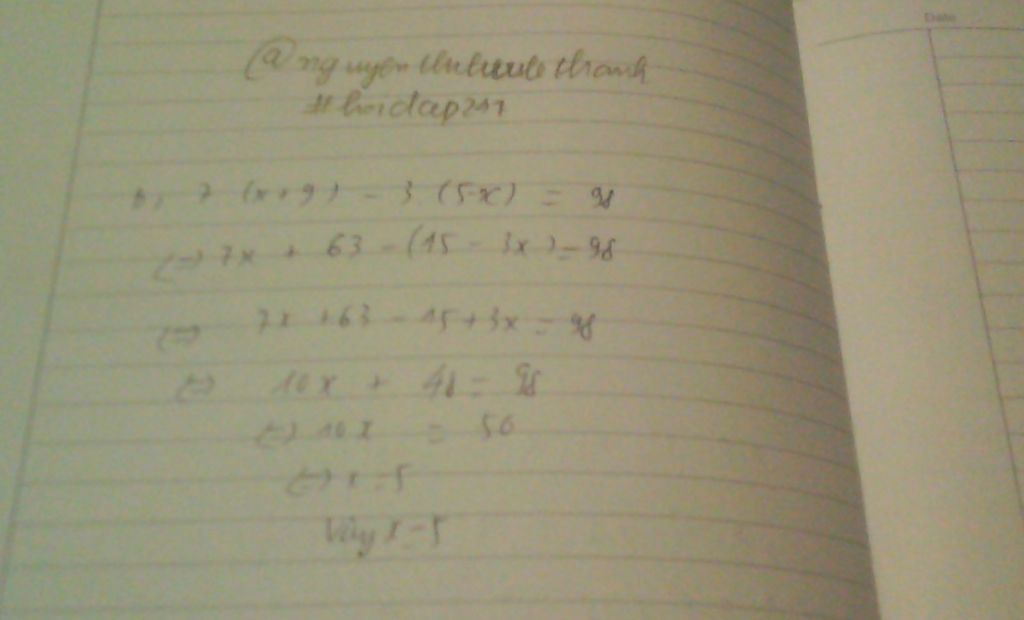 Date
#hoidap247
b, 7 (x+9) - 3 (5-x) = 98
(=) 7x + 63 - (15 - 3x) = 98
(=) 7x + 63 - 15 + 3x = 98
(=) 10x + 48 = 98
(=) 10x = 50
(=) x = 5
Vậy x = 5